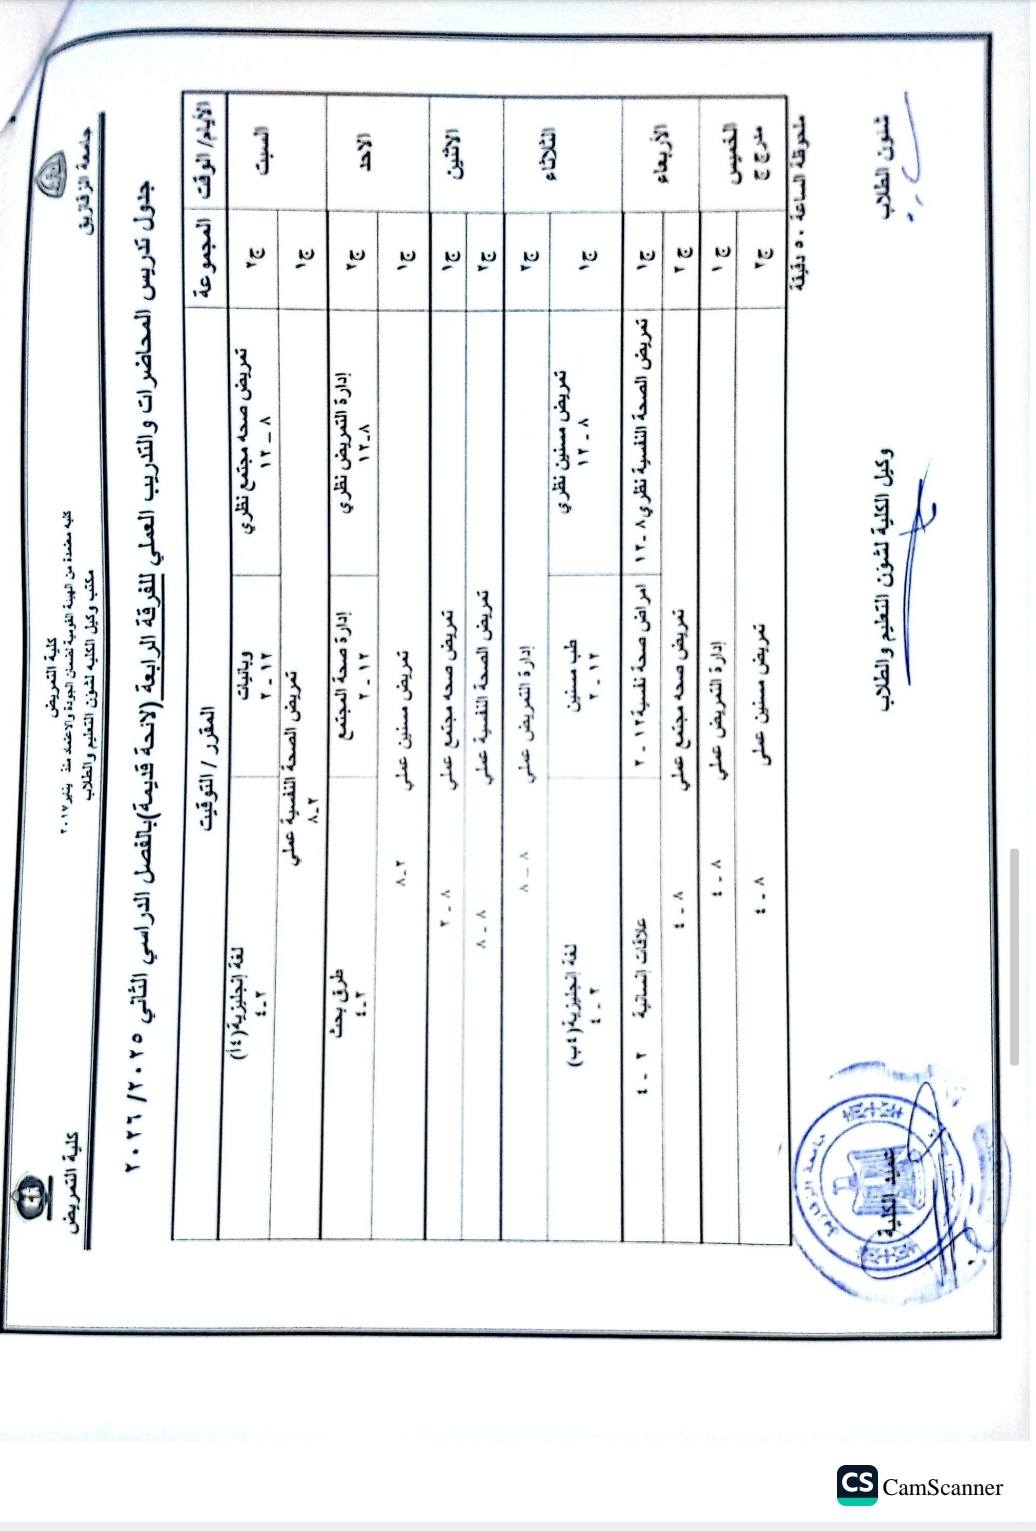 جامعة الزقازيق
كلية التمريض
كلية التمريض
كليه معتمدة من الهيئة القومية لضمان الجودة والاعتماد منذ يناير ٢٠١٧
مكتب وكيل الكليه لشئون التعليم والطلاب
جدول تدريس المحاضرات والتدريب العملي للفرقة الرابعة (لائحة قديمة) بالفصل الدراسي الثاني ٢٠٢٥/ ٢٠٢٦
الأيام/ الوقت المجموعة المقرر / التوقيت
السبت ج٢ تمريض صحه مجتمع نظري ٨ – ١٢ وبائيات ١٢ - ٢ لغة إنجليزية (٤أ) ٢-٤
ج١ تمريض الصحة النفسية عملي ٢-٨
الاحد ج٢ إدارة التمريض نظري ٨-١٢ إدارة صحة المجتمع ١٢ - ٢ طرق بحث ٢-٤
ج١ تمريض مسنين عملي ٢-٨
الاثنين ج١ تمريض صحه مجتمع عملي ٨ - ٢
ج٢ تمريض الصحة النفسية عملي ٨ - ٨
الثلاثاء ج٢ إدارة التمريض عملي ٨ - ٨
ج١ تمريض مسنين نظري ٨ - ١٢ طب مسنين ١٢ - ٢ لغة انجليزية (٤ب) ٢ - ٤
الأربعاء ج١ تمريض الصحة النفسية نظري ٨ -١٢ امراض صحة نفسية ١٢ - ٢ علاقات إنسانية ٢ - ٤
ج ٢ تمريض صحه مجتمع عملي ٨ - ٤
الخميس ج ١ إدارة التمريض عملي ٨ - ٤
مدرج ج ج٢ تمريض مسنين عملى ٨ - ٤
ملحوظة الساعة ٥٠ دقيقة
شئون الطلاب
وكيل الكلية لشئون التعليم والطلاب
عميد الكلية
جامعة الزقازيق
CS CamScanner